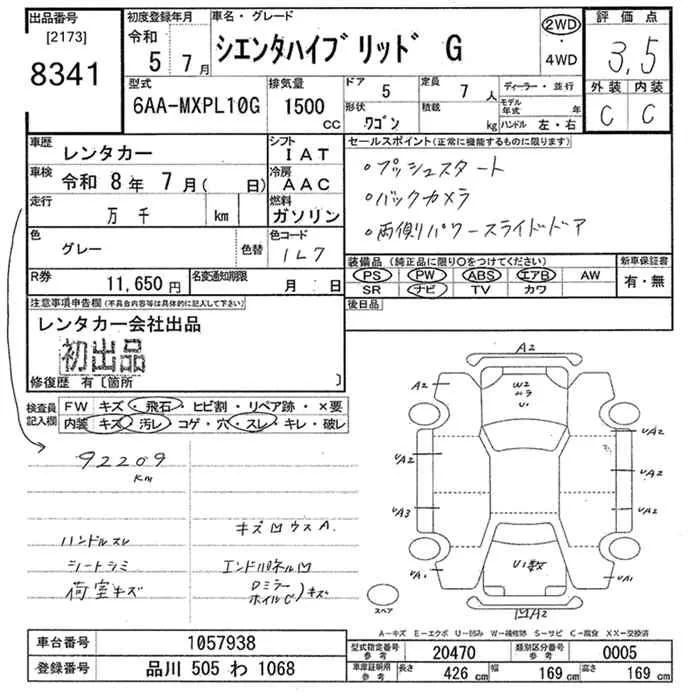 出品番号
[2173]
8341
初度登録年月
令和
5 7月
車名・グレード
シエンタハイブリッド G
2WD
・
4WD
評価点
3,5
外装 内装
C C
型式
6AA-MXPL10G
排気量
1500
CC
ドア
5
定員
7 人
形状
ワゴン
積載
kg
ディーラー・並行
モデル年式 年
ハンドル 左・右
車歴
レンタカー
シフト
IAT
車検
令和 8年 7月( 日)
冷房
AAC
走行
万 千 km
燃料
ガソリン
色
グレー
色替
色コード
1L7
R券
11,650円
名変通知期限
月 日
セールスポイント(正常に機能するものに限ります)
・プッシュスタート
・バックカメラ
・両側パワースライドドア
装備品(純正品に限り○をつけてください)
新車保証書
PS PW ABS エアB AW
SR ナビ TV カワ
有・無
後日品
注意事項申告欄(不具合内容等は具体的に記入して下さい)
レンタカー会社出品
初出品
修復歴 有〔箇所 〕
検査員
記入欄
FW キズ・飛石・ヒビ割・リペア跡・×要
内装 キズ・汚レ・コゲ・穴・スレ・キレ・破レ
92209
km
ハンドルスレ
シートシミ
荷室キズ
キズ凹ウスA.
エンドパネル凹
ロミラー
ホイルC)キズ
A2
A2
W2
ハラ
U1
UA2
UA2
UA2
UA3
UA2
UA1
UA1
U1数
凹A2
スペア
A-キズ E-エクボ U-凹み W-補修跡 S-サビ C-腐食 XX-交換済
車台番号
1057938
登録番号
品川 505 わ 1068
型式指定番号
参考
20470
類別区分番号
参考
0005
車庫証明用
参考
長さ
426 cm
幅
169 cm
高さ
169 cm